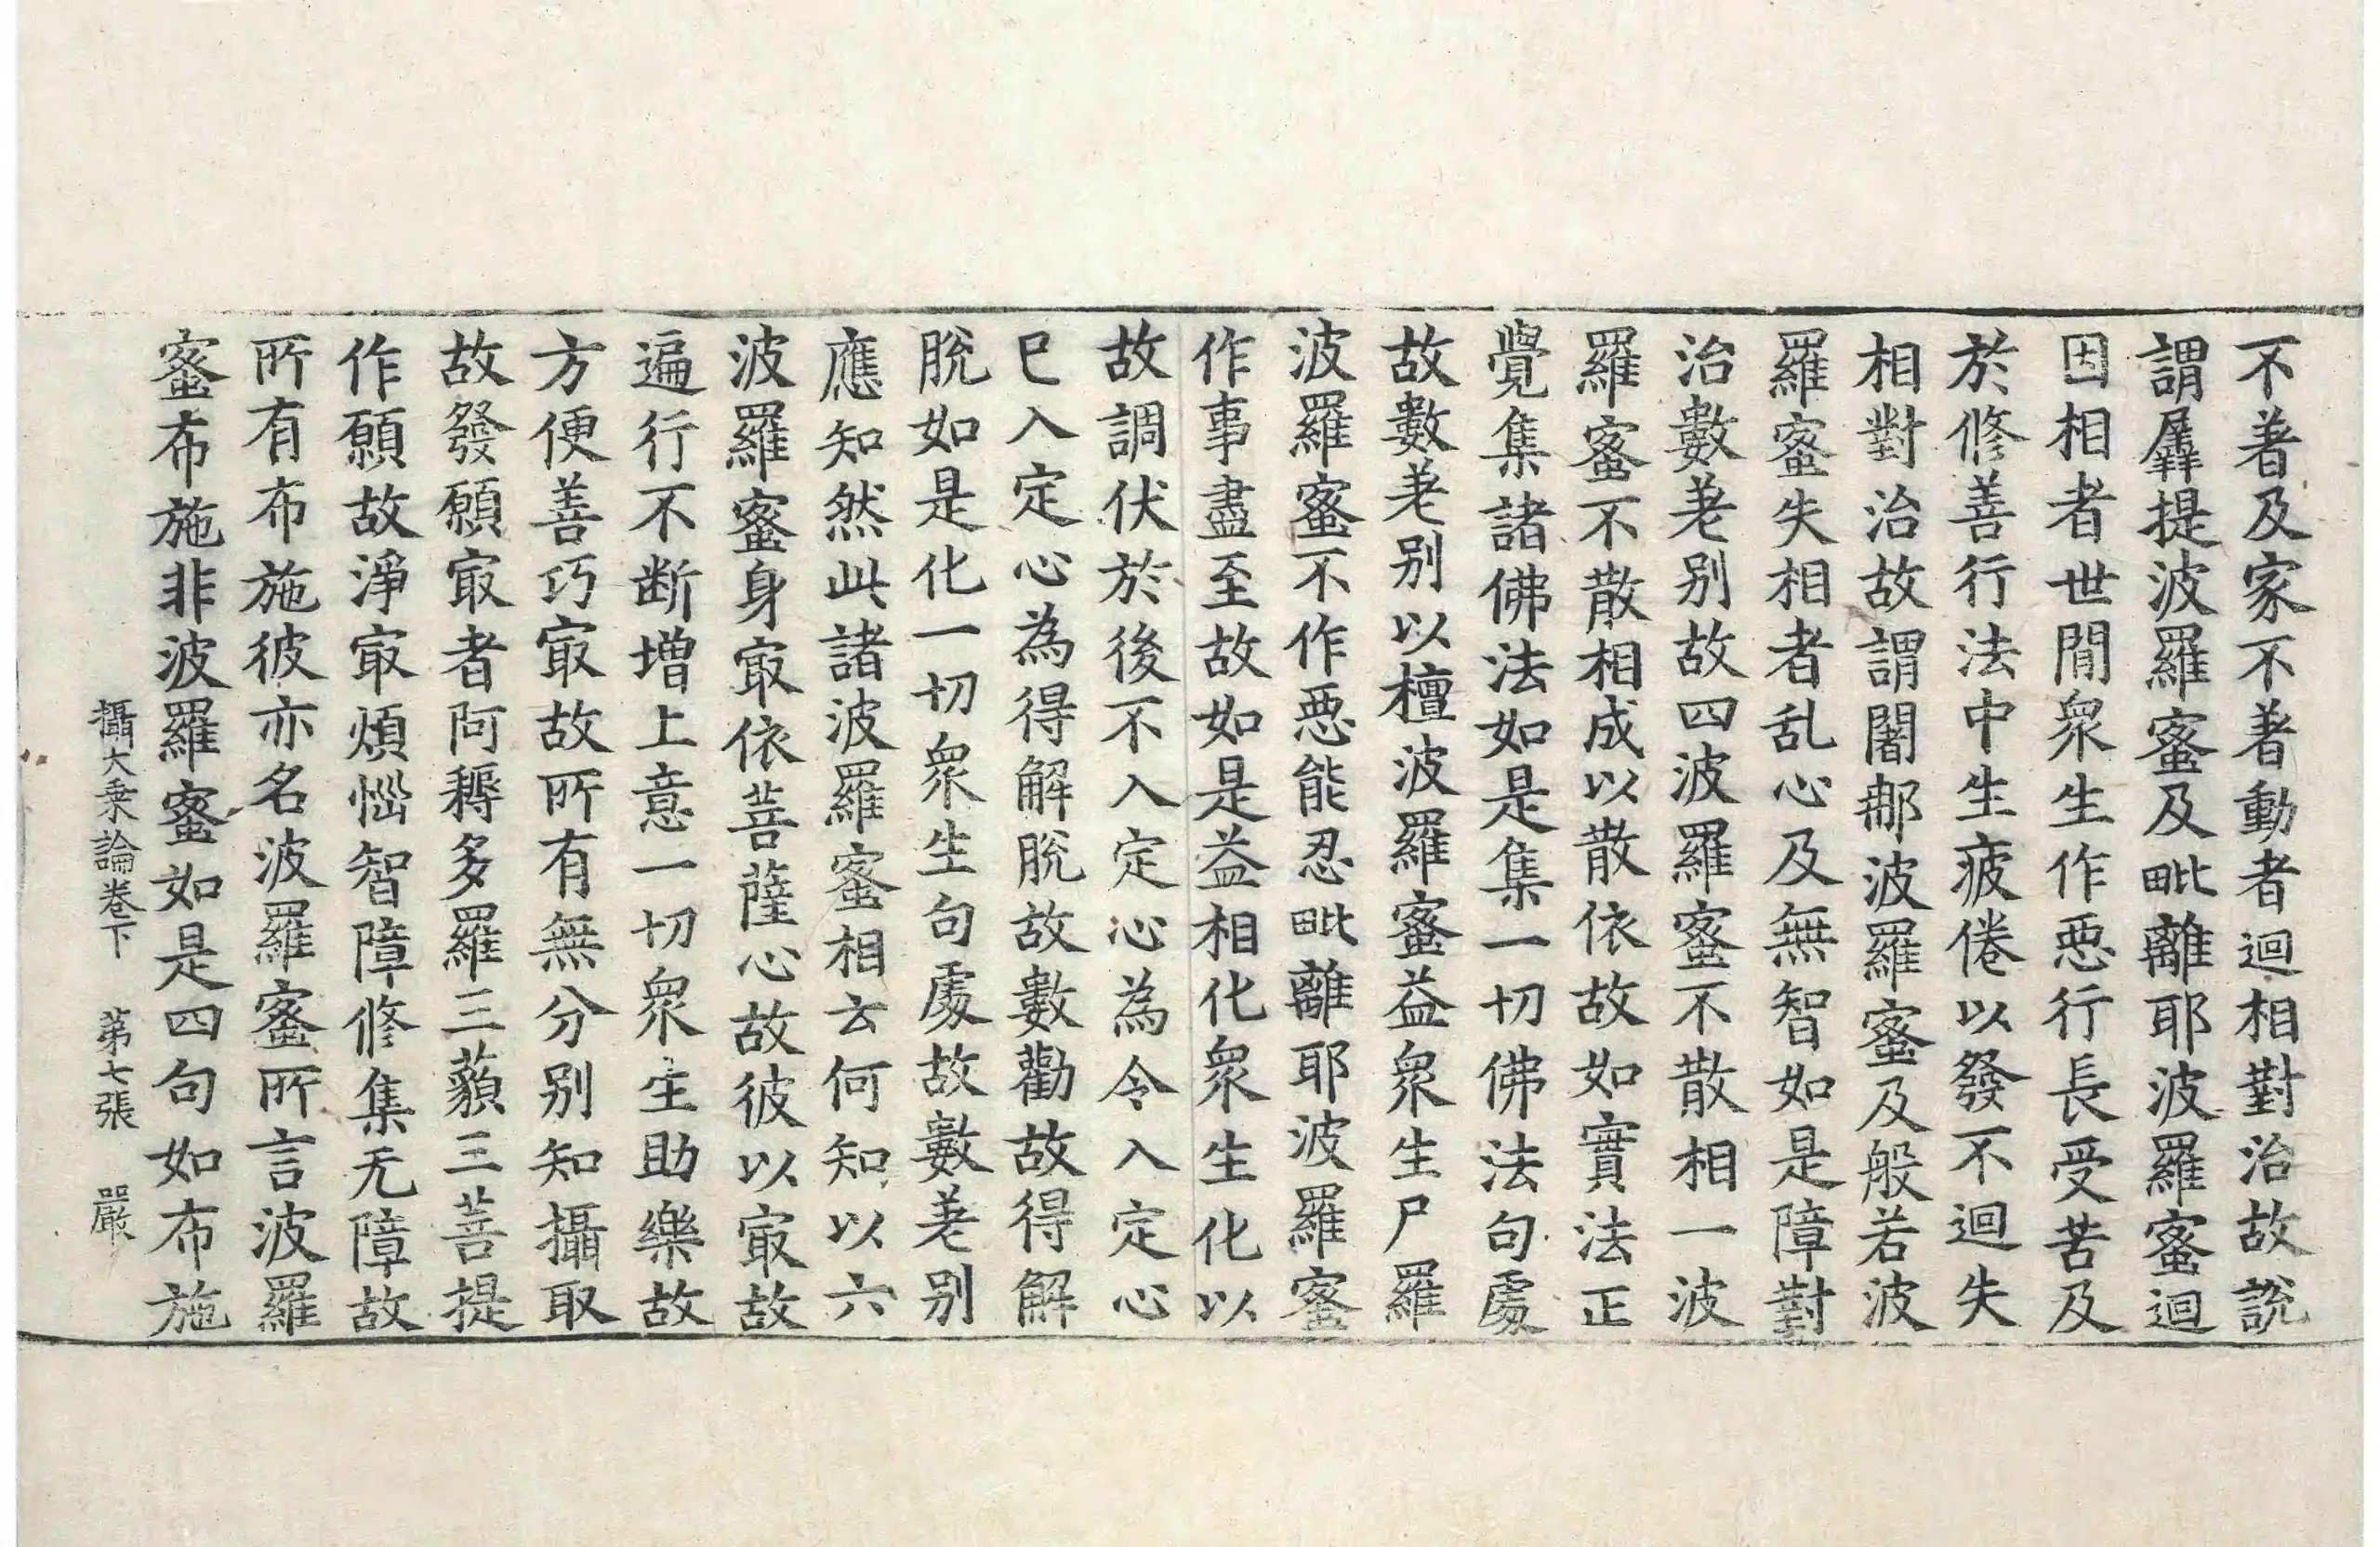 不著及家不著動者迴相對治故說
謂羼提波羅蜜及毗離耶波羅蜜迴
因相者世間衆生作惡行長受苦及
於修善行法中生疲倦以發不迴失
相對治故謂闍那波羅蜜及般若波
羅蜜失相者乱心及無智如是障對
治數差别故四波羅蜜不散相一波
羅蜜不散相成以散依故如實法正
覺集諸佛法如是集一切佛法句處
故數差别以檀波羅蜜益衆生尸羅
波羅蜜不作惡能忍毗離耶波羅蜜
作事盡至故如是益相化衆生化以
故調伏於後不入定心為令入定心
已入定心為得解脫故數勸故得解
脫如是化一切衆生句處故數差别
應知然此諸波羅蜜相云何知以六
波羅蜜身㝡依菩薩心故彼以㝡故
遍行不断增上意一切衆生助樂故
方便善巧㝡故所有無分别知攝取
故發願㝡者阿耨多羅三藐三菩提
作願故淨㝡煩惱智障修集无障故
所有布施彼亦名波羅蜜所言波羅
蜜布施非波羅蜜如是四句如布施
攝大乗論卷下　第七張　嚴